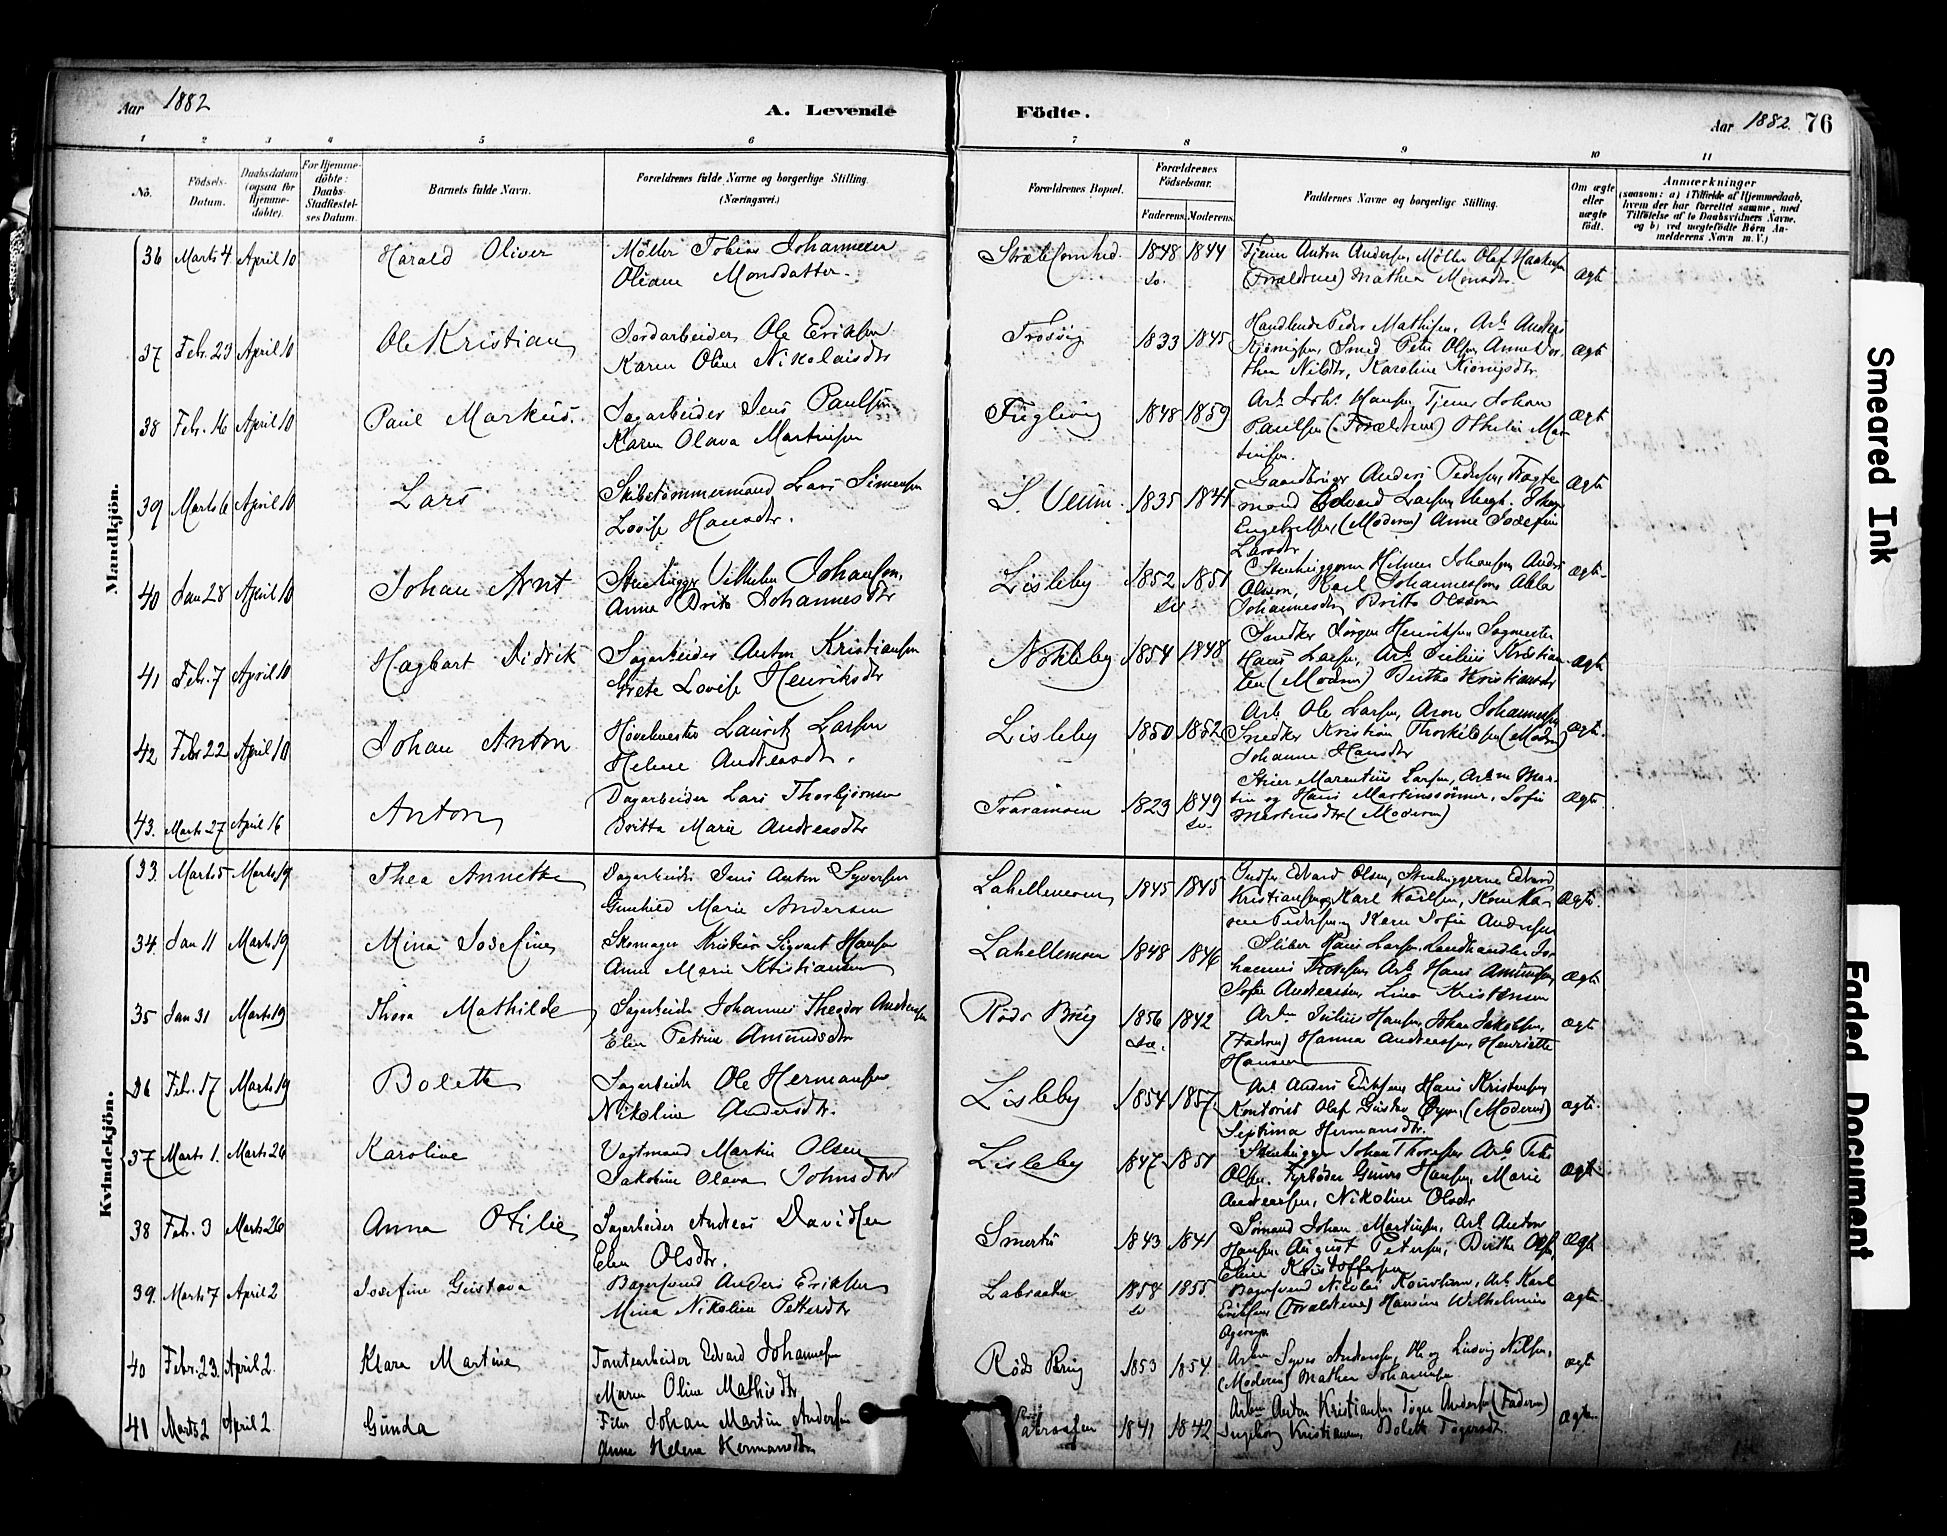 Aar 1882
A. Levende
Födte.
Aar 1882. 76
1 2 3 4 5 6 7 8 9 10 11
No.
Födsels-Datum.
Daabsdatum (ogsaa for Hjemmedöbte).
For Hjemmedöbte: Daabs-Stadfæstelses Datum.
Barnets fulde Navn.
Forældrenes fulde Navne og borgerlige Stilling (Næringsvei.)
Forældrenes Bopæl.
Forældrenes Födselsaar.
Faderens. Moderens.
Faddernes Navne og borgerlige Stilling.
Om ægte eller uægte födt.
Anmærkninger
(saasom: a) i Tilfælde af Hjemmedaab, hvem der har forrettet samme, med Tilföielse af to Daabsvidners Navne, og b) ved uægtefödte Börn Anmelderens Navn m. V.)
Mandkjön.
36 Marts 4 April 10 Harald Oliver Möller Tobias Johannesen 1848 1844 Tjener Anton Andersen, Möller Olaf Haakensen
Oliane Monsdatter. (Forældrene) Mathea Monsdtr. Ægte
37 Febr. 23 April 10 Ole Kristian Jordarbeider Ole Eriksen Trosvig 1833 1845 Handlende Peder Mathisen, Arb. Anders
Karen Oline Nikolaisdtr Smed Peter Olsen, Anne Do-
thea Nilsdtr, Karoline Ægte
38 Febr. 16 April 10 Paul Markus. Sagarbeider Jens Paulsen Fuglevig 1848 1859 Arb. Johs. Hansen, Tjener Johan
Karen Olava Martinsen Paulsen (Forældrene) Othelie Mar-
tinsen. Ægte
39 Marts 6 April 10 Lars Skibstömmermand Lars Simensen S. Veum. 1835 1841 Gaardbruger Anders Pedersen, Fragte-
Lovise Hansdtr. mand Edvard Larsen,
(Moderen) Anne Josefine
Larsdtr Ægte
40 Jan 28 April 10 Johan Arnt Stenhugger Vilhelm Johansen, Lisleby 1852 1851 Stenhuggerne Hilmer Johansen, Anders
Anna Brita Johannesdtr Olsson, Karl Johannesson,
Johannesdtr, Britta Olsson Ægte
41 Febr. 7 April 10 Hagbart Didrik Sagarbeider Anton Kristiansen Nökleby 1854 1848 Snedker Jörgen Henriksen, Sagmester
Grete Lovise Henriksdtr Hans Larsen, Arb. Julius Kristian-
sen (Moderen) Berthe Kristiansdtr Ægte
42 Febr 22 April 10 Johan Anton Hövelmester Lauritz Larsen Lisleby 1850 1852 Arb. Ole Larsen, Aron Johannesen
Helene Andreasdtr. Snedker Kristian Thorkildsen (Moderen)
Johanne Hansdtr Ægte
43. Marts 27 April 16 Anton Dagarbeider Lars Thorbjörnsen Traramoen 1823 1849 Larsen, Arb. Mar-
Britta Marie Andreasdtr tin og Hans Martinssönner, Sofie
Martinsdtr (Moderen) Ægte
Kvindekjön.
33. Marts 5 Marts 19 Thea Annette Dagarbeider Jens Anton Syversen Lahellemoen 1845 1845 Edvard Olsen, Stenhuggerne Edvard
Gunhild Marie Andersen Kristiansen, Karl Karlsen,
Pedersen, Karen Sofie Andersen Ægte
34. Jan 11 Marts 19 Mina Josefine Skomager Kristian Sigvart Hansen Lahellemoen 1848 1846 Sliber Hans Larsen, Landhandler Jo-
Anne Marie Kristiansen hannes Thoresen, Arb. Hans Amundsen,
Sofie Andreassen, Lina Kristensen Ægte
35 Jan 31 Marts 19 Thora Mathilde Sagarbeider Johannes Theodor Andersen Röds Brug 1856 1842 Arb. Julius Hansen, Johan Jakobsen,
Elen Petrine Amundsdtr (Faderen) Hanna Andreassen, Henriette
Hansen Ægte
36 Feb. 17 Marts 19 Bolette Sagarbeider Ole Hermansen Lisleby 1854 1857 Arb. Anders Eriksen, Hans Kristensen,
Nikoline Andersdtr. Kontorist Olaf Gustav (Moderen)
Septima Hermansdtr. Ægte.
37 Marts 1. Marts 26 Karoline Vagtmand Martin Olsen Lisleby 1847 1851 Stenhugger Johan Thoresen, Arb. Peter
Jakobine Olava Johnsdtr Olsen, Fyrböder Hansen, Marie
Andersen, Nikoline Olsdtr Ægte
38 Feb. 3 Marts 26 Anna Otilie Sagarbeider Andreas Davidsen Smertu 1843 1841 Sömand Johan Martinsen, Arb. Anton
Elen Olsdtr. Hansen, August Petersen, Berthe
Eline Kristoffersen Ægte
39. Marts 7 April 2 Josefine Gustava Bagersvend Anders Eriksen Labraaten 1858 1855 Bagersvend Nicolai Arb. Karl
Mina Nikoline Pettersdtr Eriksen (Forældrene) Hansine Wilhelmine Ægte
40 Febr. 23. April 2. Klara Martine Tomtearbeider Edvard Johannesen Röds Brug 1853 1854. Arb. Syver Andersen, Ole og Ludvig Nilsen,
Maren Oline Mathisdtr (Moderen) Mathea Johannesen Ægte
41 Marts 2 April 2 Gunda Johan Martin Andersen 1841 1842 Arb. Anton Kristiansen, Andersen (Faderen)
Anne Helene Hermansdtr Ingeborg Kristiansen, Bolette Ægte
Smeared Ink
Faded Document